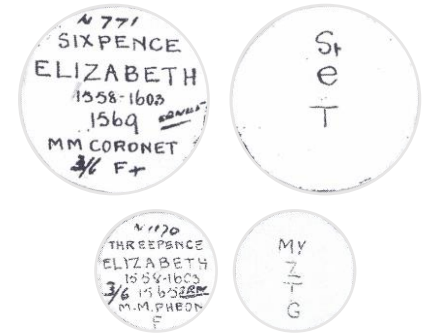 N 771
SIXPENCE
ELIZABETH
1558-1603
1569
MM CORONET
3/6 F+
St
e
T
N 1170
THREEPENCE
ELIZABETH
1558-1603
3/6 1565
M.M. PHEON
F
My
Z
T
G